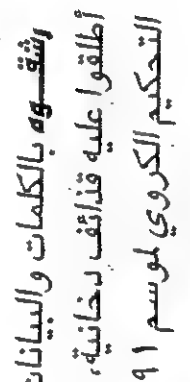 وشقوه بالكلمات والبيانات
أطلقوا عليه قذائف دخانية،
التحكيم الكروي لموسم ٩١